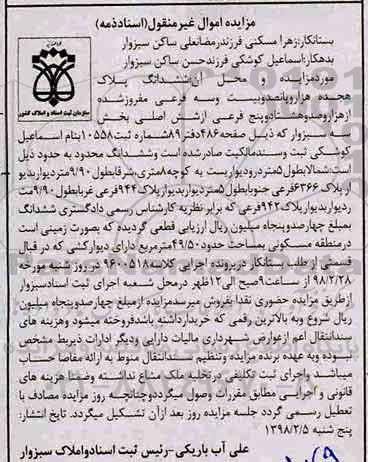 مزایده اموال غیرمنقول(اسنادذمه)
بستانکار:زهرا مسکنی فرزندرمضانعلی ساکن سبزوار
بدهکار:اسماعیل کوشکی فرزندحسن ساکن سبزوار
موردمزایده و محل آن:ششدانگ پلاک
هجده هزاروپانصدوبیست وسه فرعی مفروزشده
ازهزاروصدوهشتادوپنج فرعی ازشش اصلی بخش
سازمان ثبت اسناد و املاک کشور
سه سبزوار که ذیل صفحه۴۸۶دفتر۸۹شماره ثبت۱۰۵۵۸بنام اسماعیل
کوشکی ثبت وسندمالکیت صادرشده است وششدانگ محدود به حدود ذیل
است:شمالابطول۵متردرودیواریست به کوچه۸متری،شرقابطول۹/۹۰متردیواربدیو
ارپلاک۶۳۶۶فرعی جنوبابطول۵متردیواربدیوارپلاک۹۴۴فرعی غربابطول۹/۹۰مت
ردیواربدیوارپلاک۹۴۲فرعی که برابر نظریه کارشناس رسمی دادگستری ششدانگ
بمبلغ چهارصدوپنجاه میلیون ریال ارزیابی قطعی گردیده که بصورت زمینی است
درمنطقه مسکونی بمساحت حدود۴۹/۵۰مترمربع دارای دیوارکشی که در قبال
قسمتی از طلب بستانکار درپرونده اجرایی کلاسه۹۶۰۰۵۱۸ در روز شنبه مورخه
۹۸/۲/۲۸ از ساعت۹صبح الی۱۲ظهر درمحل شعبه اجرای ثبت اسنادسبزوار
ازطریق مزایده حضوری نقدابفروش میرسدمزایده ازمبلغ چهارصدوپنجاه میلیون
ریال شروع وبه بالاترین رقمی که خریدارداشته باشدفروخته میشود وهزینه های
سندانتقال اعم ازعوارض شهرداری مالیات دارایی ودیگر ادارات ذیربط مشخص
نبوده وبه عهده برنده مزایده وتنظیم سندانتقال منوط به ارائه مفاصا حساب
میباشد واجرای ثبت تکلیفی درتخلیه ملک مشاع نداشته وضمنا هزینه های
قانونی و اجرایی مطابق مقررات وصول میگرددوچنانچه روز مزایده مصادف با
تعطیل رسمی گردد جلسه مزایده روز بعد ازآن تشکیل میگردد. تاریخ انتشار:
پنج شنبه ۱۳۹۸/۲/۵
علی آب باریکی-رئیس ثبت اسنادواملاک سبزوار